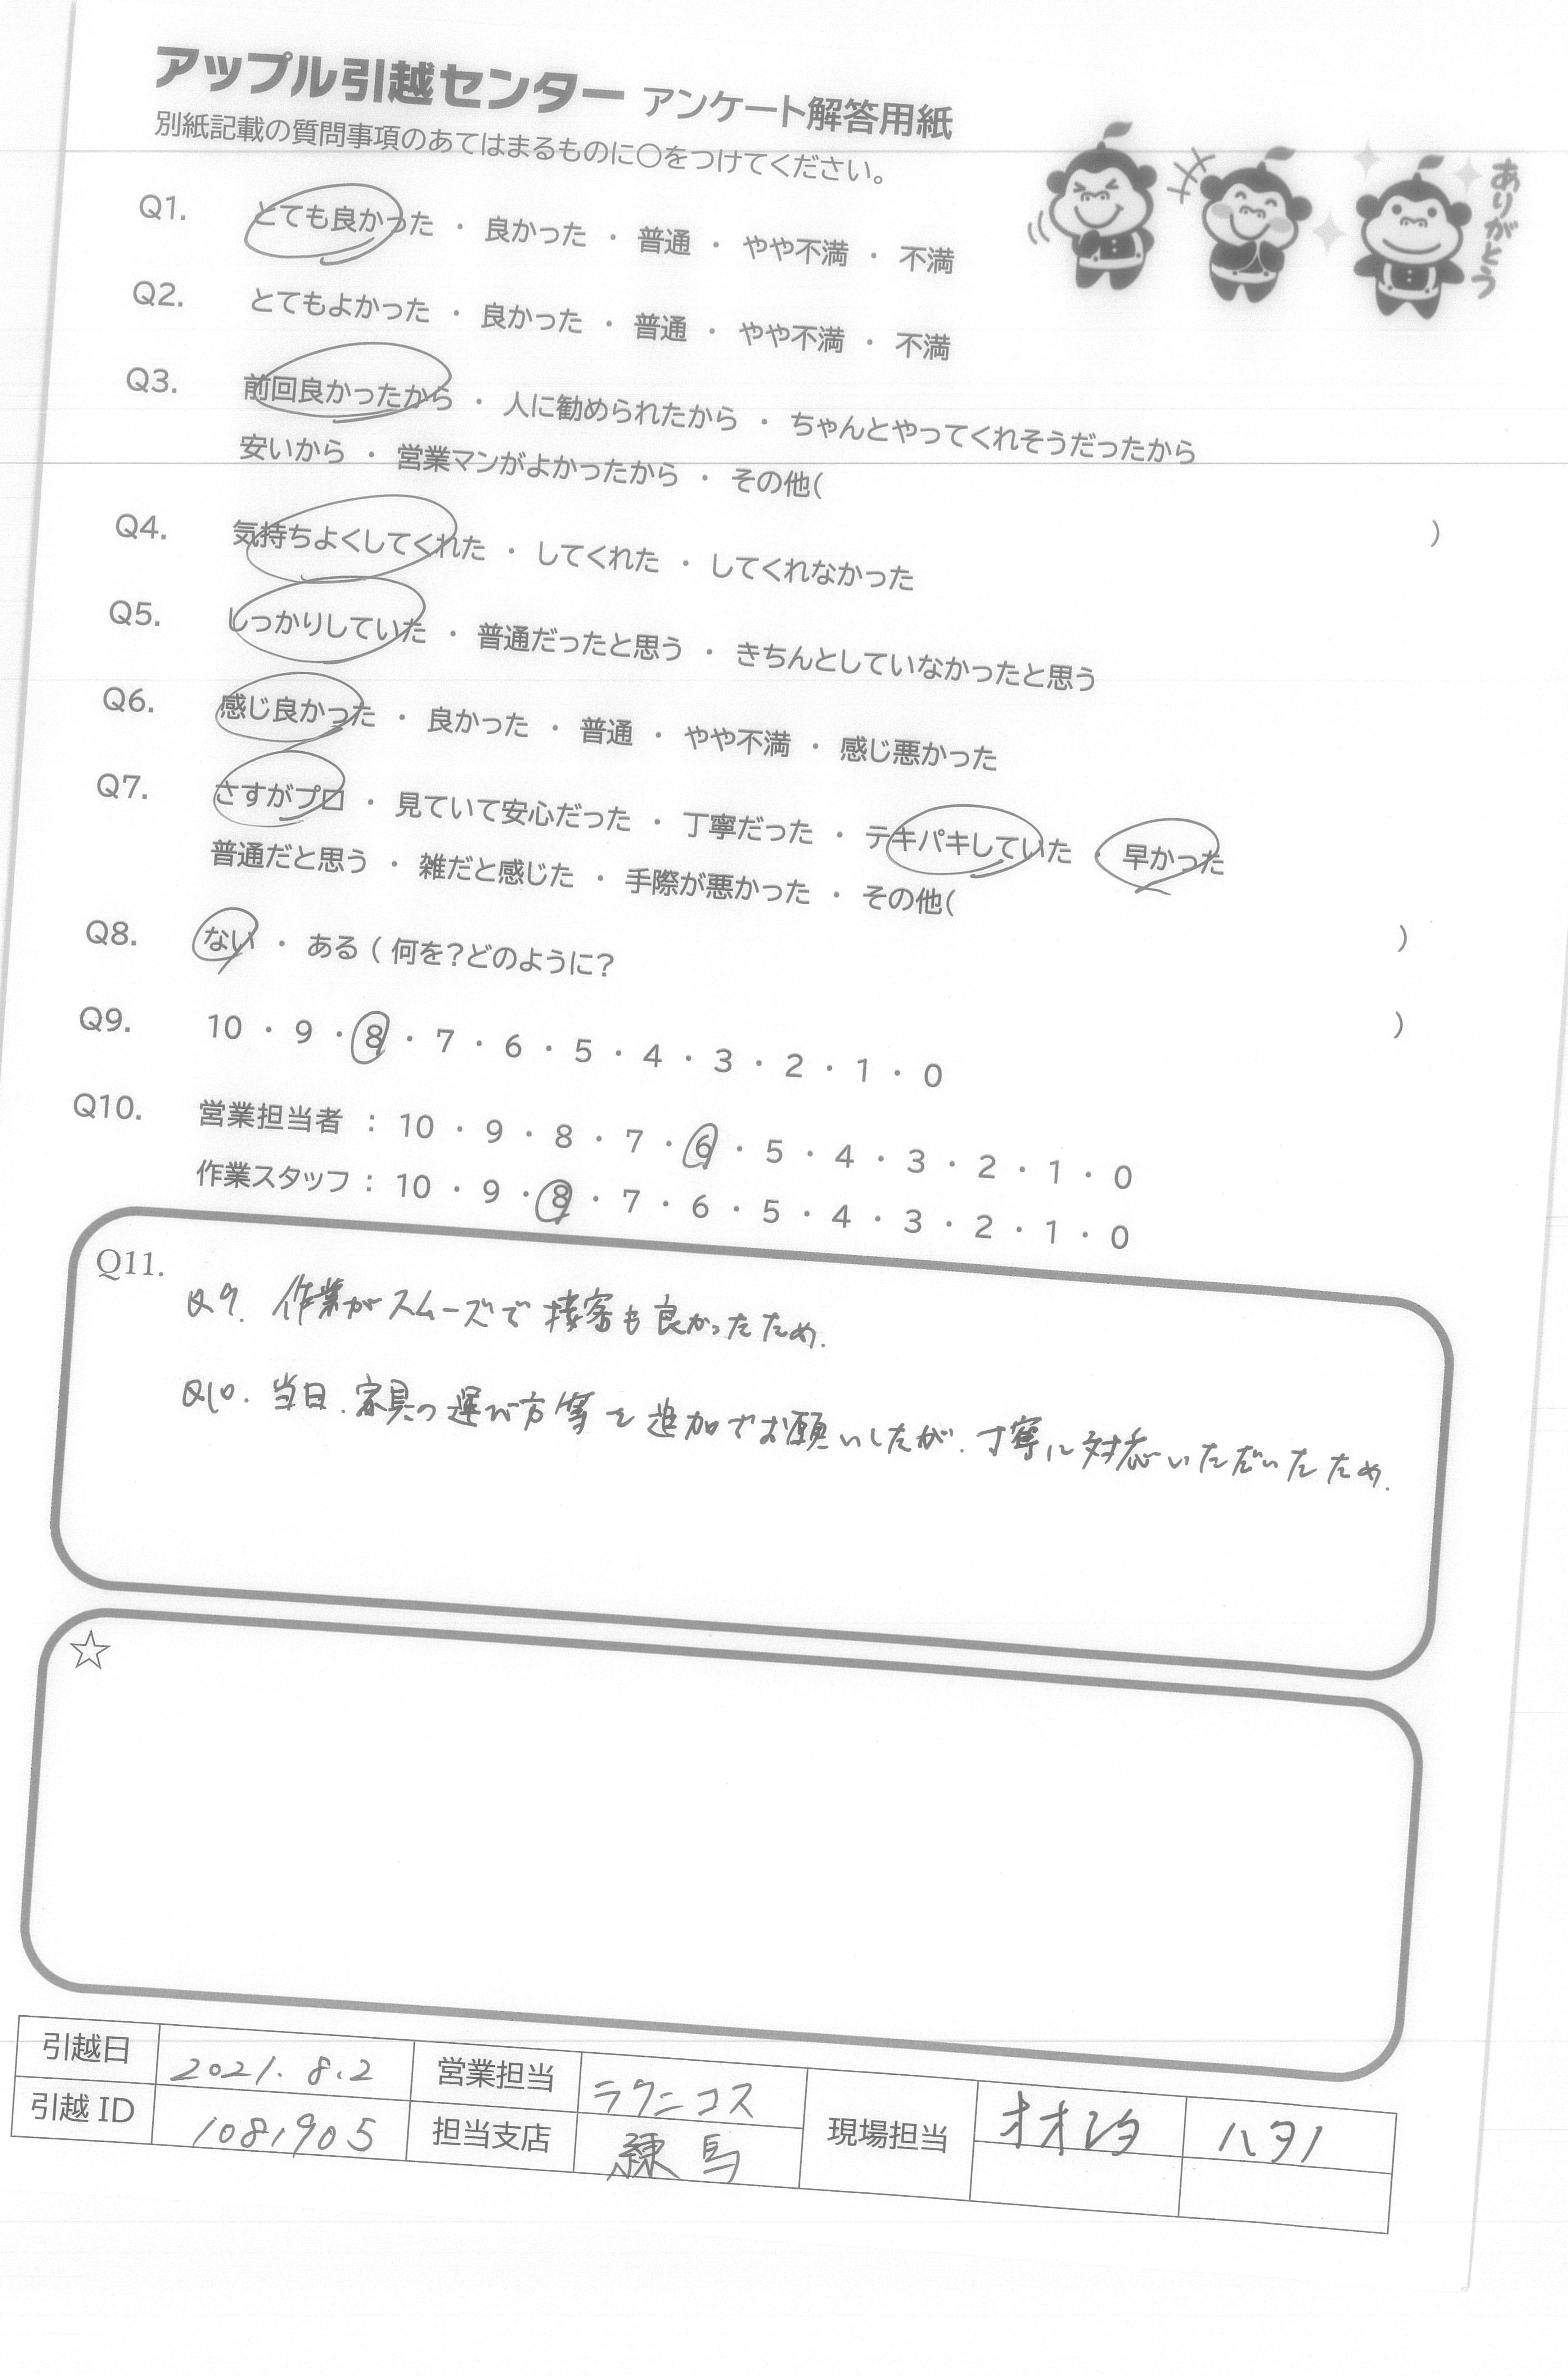 アップル引越センター アンケート解答用紙
別紙記載の質問事項のあてはまるものに〇をつけてください。
ありがとう
Q1. とても良かった ・ 良かった ・ 普通 ・ やや不満 ・ 不満
Q2. とてもよかった ・ 良かった ・ 普通 ・ やや不満 ・ 不満
Q3. 前回良かったから ・ 人に勧められたから ・ ちゃんとやってくれそうだったから
安いから ・ 営業マンがよかったから ・ その他( )
Q4. 気持ちよくしてくれた ・ してくれた ・ してくれなかった
Q5. しっかりしていた ・ 普通だったと思う ・ きちんとしていなかったと思う
Q6. 感じ良かった ・ 良かった ・ 普通 ・ やや不満 ・ 感じ悪かった
Q7. さすがプロ ・ 見ていて安心だった ・ 丁寧だった ・ テキパキしていた ・ 早かった
普通だと思う ・ 雑だと感じた ・ 手際が悪かった ・ その他( )
Q8. ない ・ ある ( 何を?どのように? )
Q9. 10 ・ 9 ・ 8 ・ 7 ・ 6 ・ 5 ・ 4 ・ 3 ・ 2 ・ 1 ・ 0
Q10. 営業担当者 : 10 ・ 9 ・ 8 ・ 7 ・ 6 ・ 5 ・ 4 ・ 3 ・ 2 ・ 1 ・ 0
作業スタッフ : 10 ・ 9 ・ 8 ・ 7 ・ 6 ・ 5 ・ 4 ・ 3 ・ 2 ・ 1 ・ 0
Q11.
Q9. 作業がスムーズで接客も良かったため.
Q10. 当日、家具の運び方等を追加でお願いしたが、丁寧に対応いただいたため.
☆
引越日 2021. 8.2 営業担当 ラクニコス 現場担当 ハタノ
引越 ID 1081905 担当支店 練馬